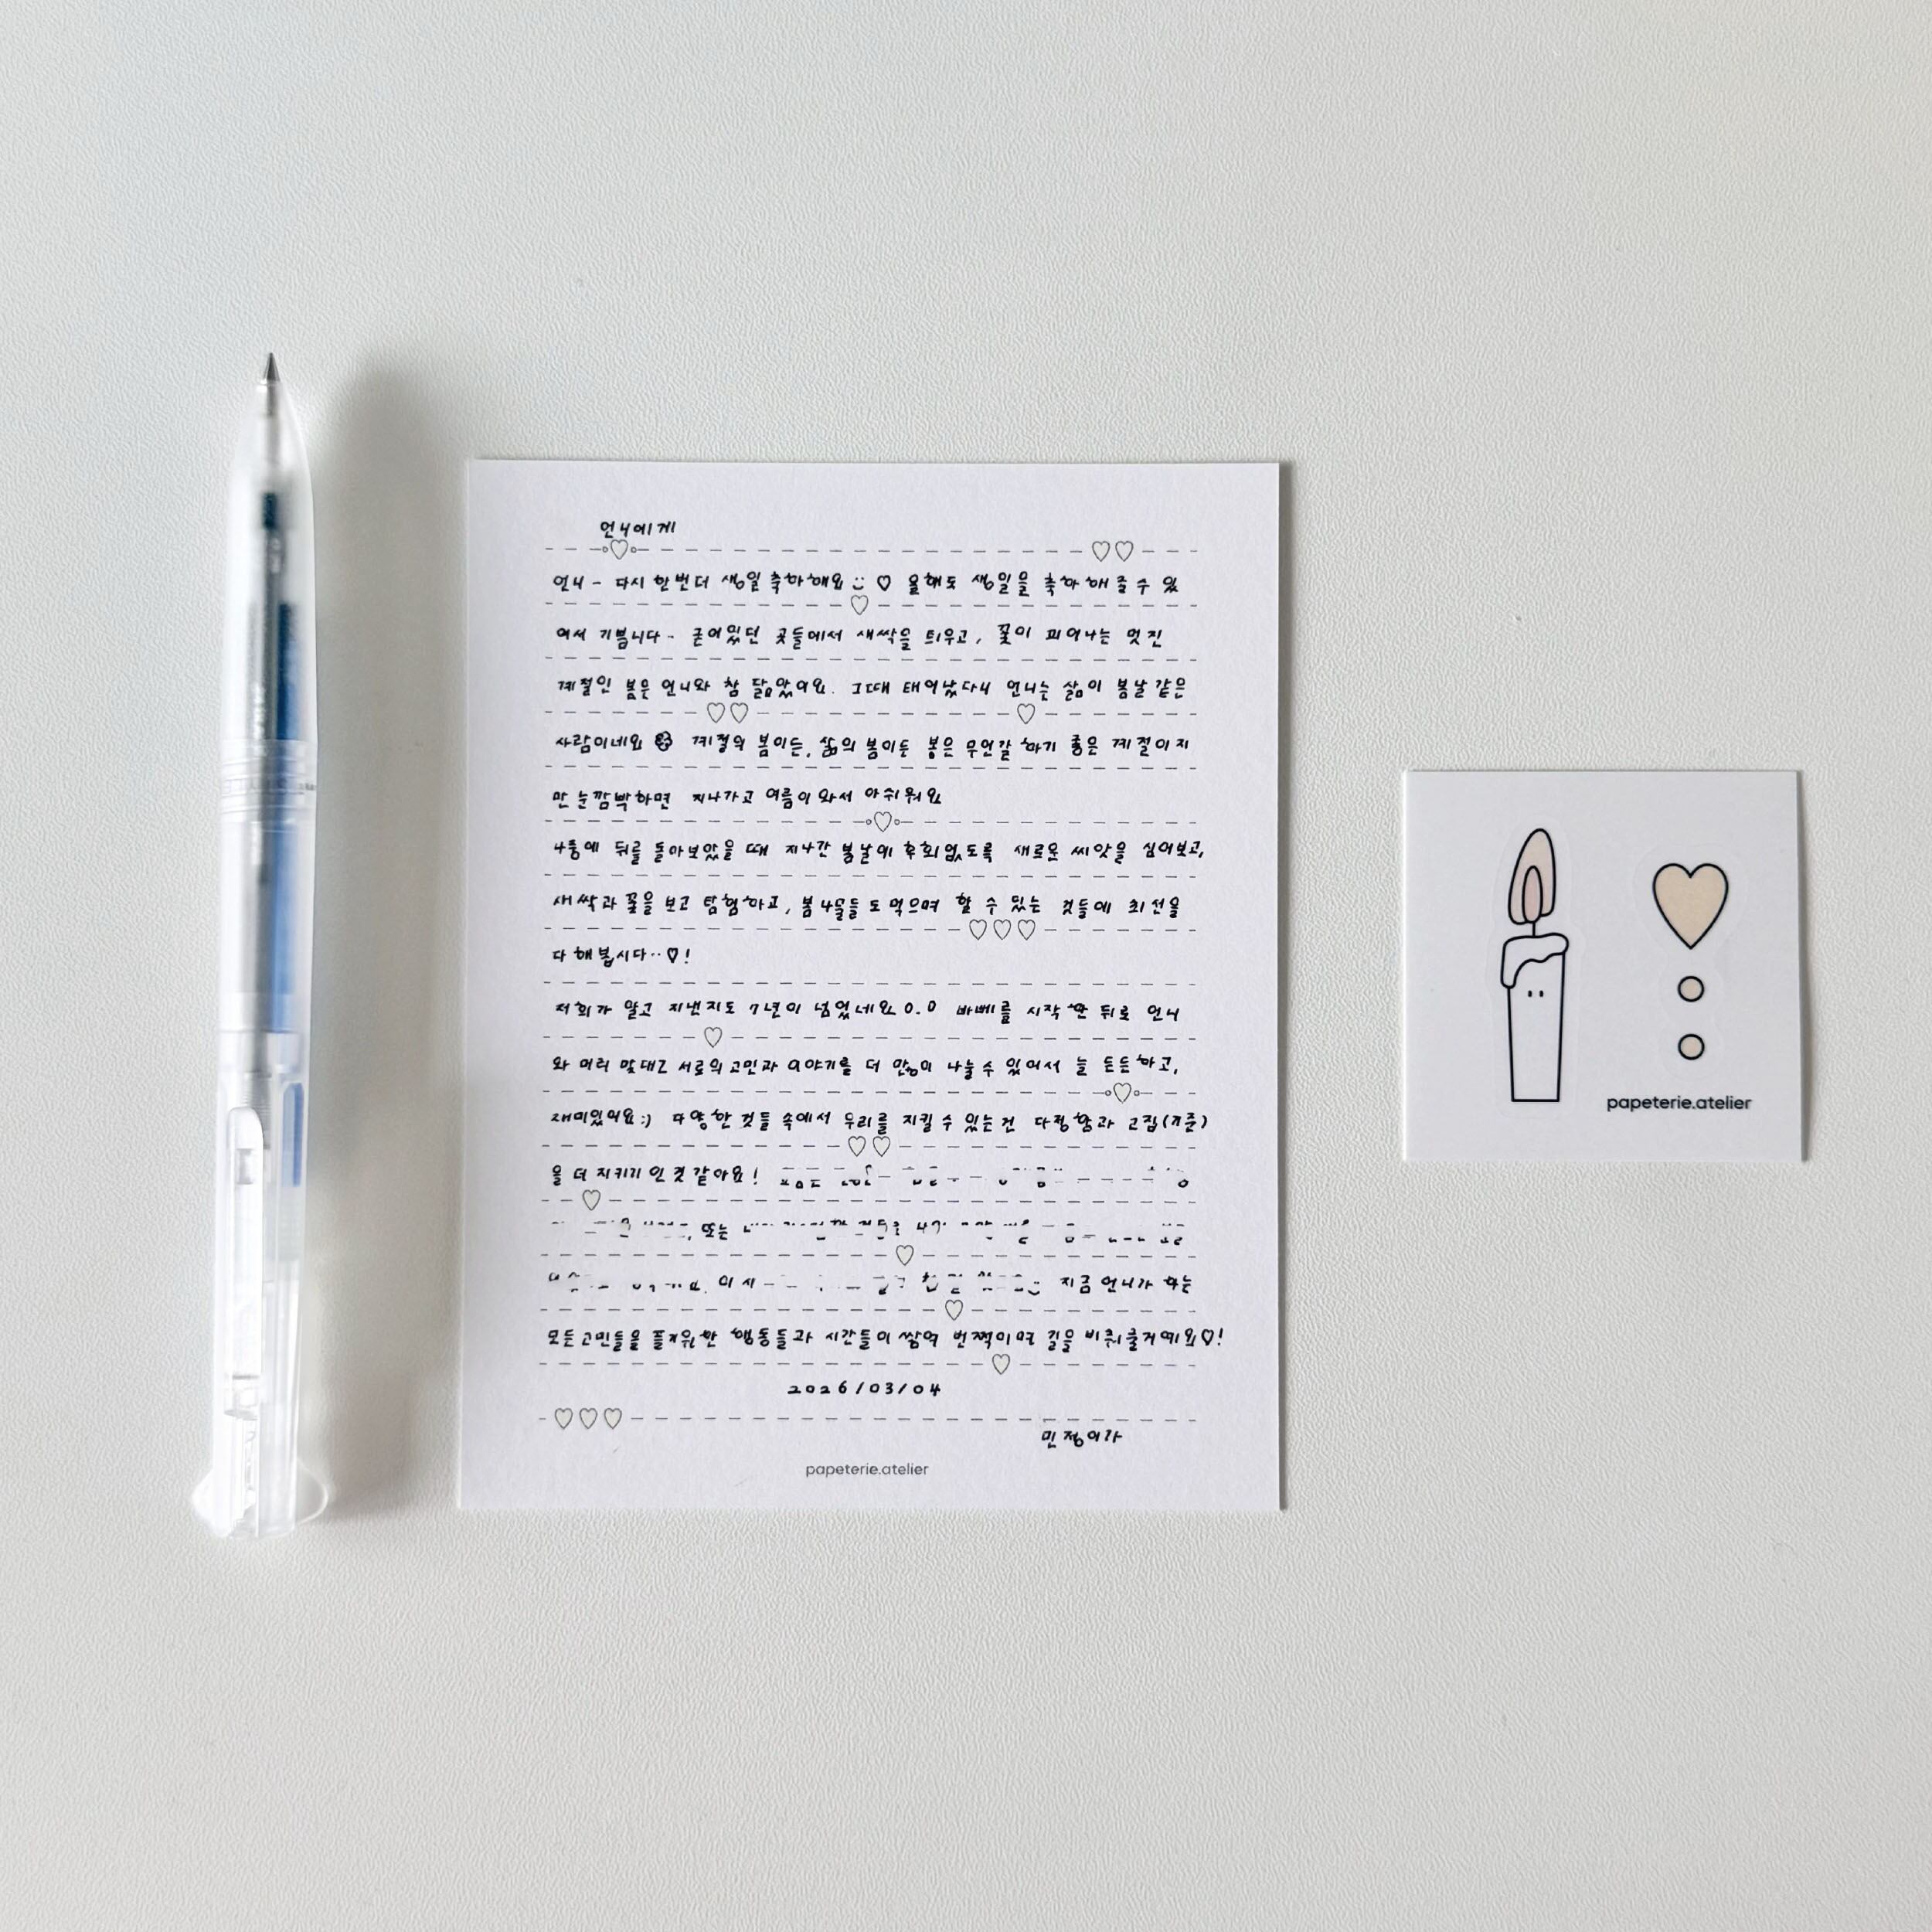 언니에게
언니- 다시 한번 더 생일 축하해요 ♡ 올해도 생일을 축하해 줄 수 있
어서 기쁩니다- 굳어있던 곳들에서 새싹을 틔우고, 꽃이 피어나는 멋진
계절인 봄은 언니와 참 닮았어요. 그때 태어났다니 언니는 삶이 봄날 같은
사람이네요 계절의 봄이든, 삶의 봄이든 봄은 무언갈 하기 좋은 계절이지
만 눈깜박하면 지나가고 여름이 와서 아쉬워요
나중에 뒤를 돌아보았을 때 지나간 봄날에 후회없도록 새로운 씨앗을 심어보고,
새싹과 꽃을 보고 탐험하고, 봄나물들도 먹으며 할 수 있는 것들에 최선을
다해봅시다..♡!
저희가 알고 지낸지도 7년이 넘었네요 0.0 빠뻬를 시작한 뒤로 언니
와 머리 맞대고 서로의 고민과 이야기를 더 많이 나눌 수 있어서 늘 든든하고,
재미있어요:) 다양한 것들 속에서 우리를 지킬 수 있는 건 다정함과 고집(기준)
을 더 지키기인 것 같아요!
또는
지금 언니가 하는
모든 고민들을 행동들과 시간들이 쌓여 번쩍이며 길을 비춰줄거예요♡!
2026/03/04
민정이가
papeterie.atelier
papeterie.atelier